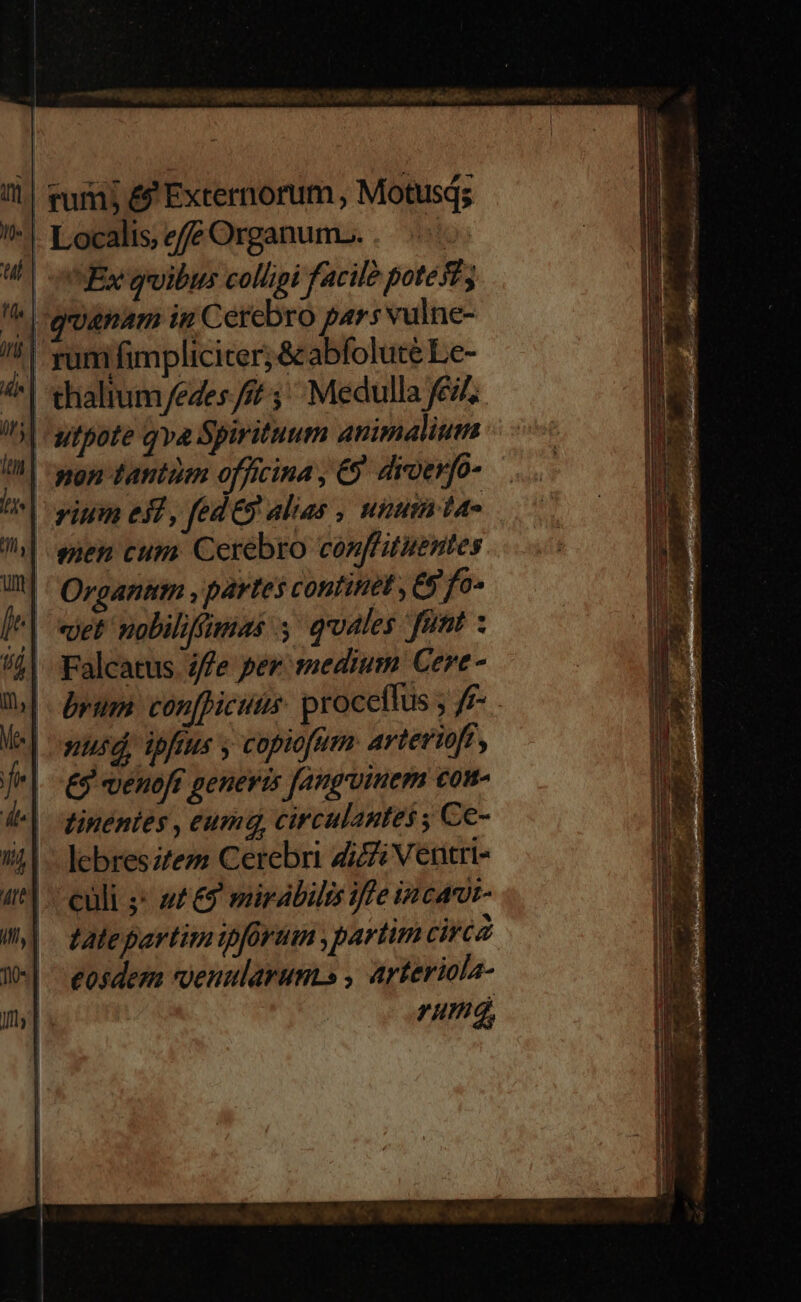 rum, & Externorum, Motusq;
Localis, esse Organum.
Ex qvibus colligi facilè potest,
qvænam in Cerebro pars vulne-
rum simpliciter, & absolutè Le-
thalium sedes sit; Medulla scil,
utpote qva Spirituum animalium
non tantùm officina, & diverso-
rium est, sed & alias, unum ta-
men cum Cerebro constituentes
Organum, partes continet, & fo-
vet nobilissimas; qvales sunt:
Falcatus iste per medium Cere-
brum conspicuus processus; si-
nusq, ipsius, copiosum arteriosi,
& venosi generis sangvinem con-
tinentes, eumq, circulantes; Ce-
lebres item Cerebri dicti Ventri-
culi; ut & mirabilis iste in cavi-
tate partim ipsorum, partim circa
eosdem venularum, arteriola-
rumq,